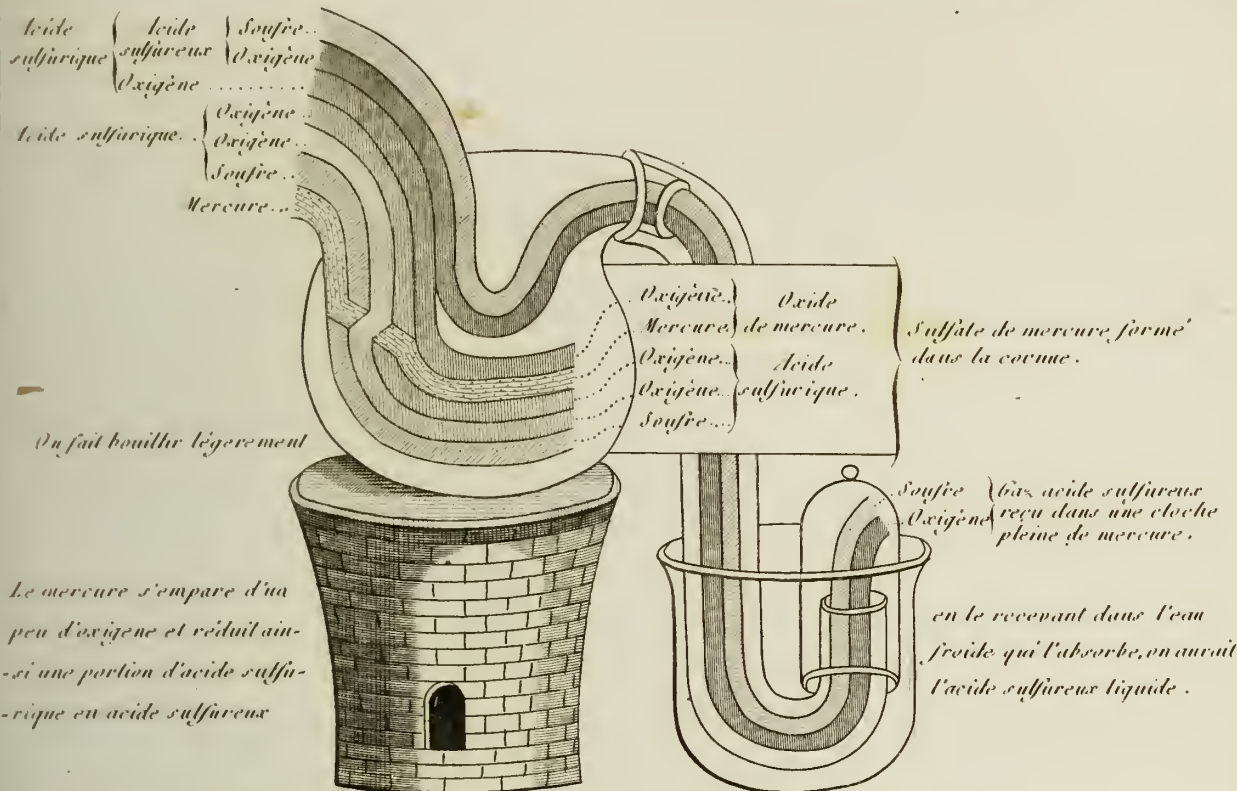 Acide
sulfurique
Acide
sulfureux
Soufre..
Oxigène
Oxigène ..........
Acide sulfurique..
Oxigène..
Oxigène..
Soufre..
Mercure...
Oxigène..
Mercure.
Oxide
de mercure.
Oxigène..
Oxigène..
Soufre..
Acide
sulfurique.
Sulfate de mercure formé
dans la cornue.
On fait bouillir légerement
Soufre
Oxigène
Gaz acide sulfureux
reçu dans une cloche
pleine de mercure.
Le mercure s'empare d'un
peu d'oxigene et réduit ain-
-si une portion d'acide sulfu-
-rique en acide sulfureux
en le recevant dans l'eau
froide qui l'absorbe, on aurait
l'acide sulfureux liquide.